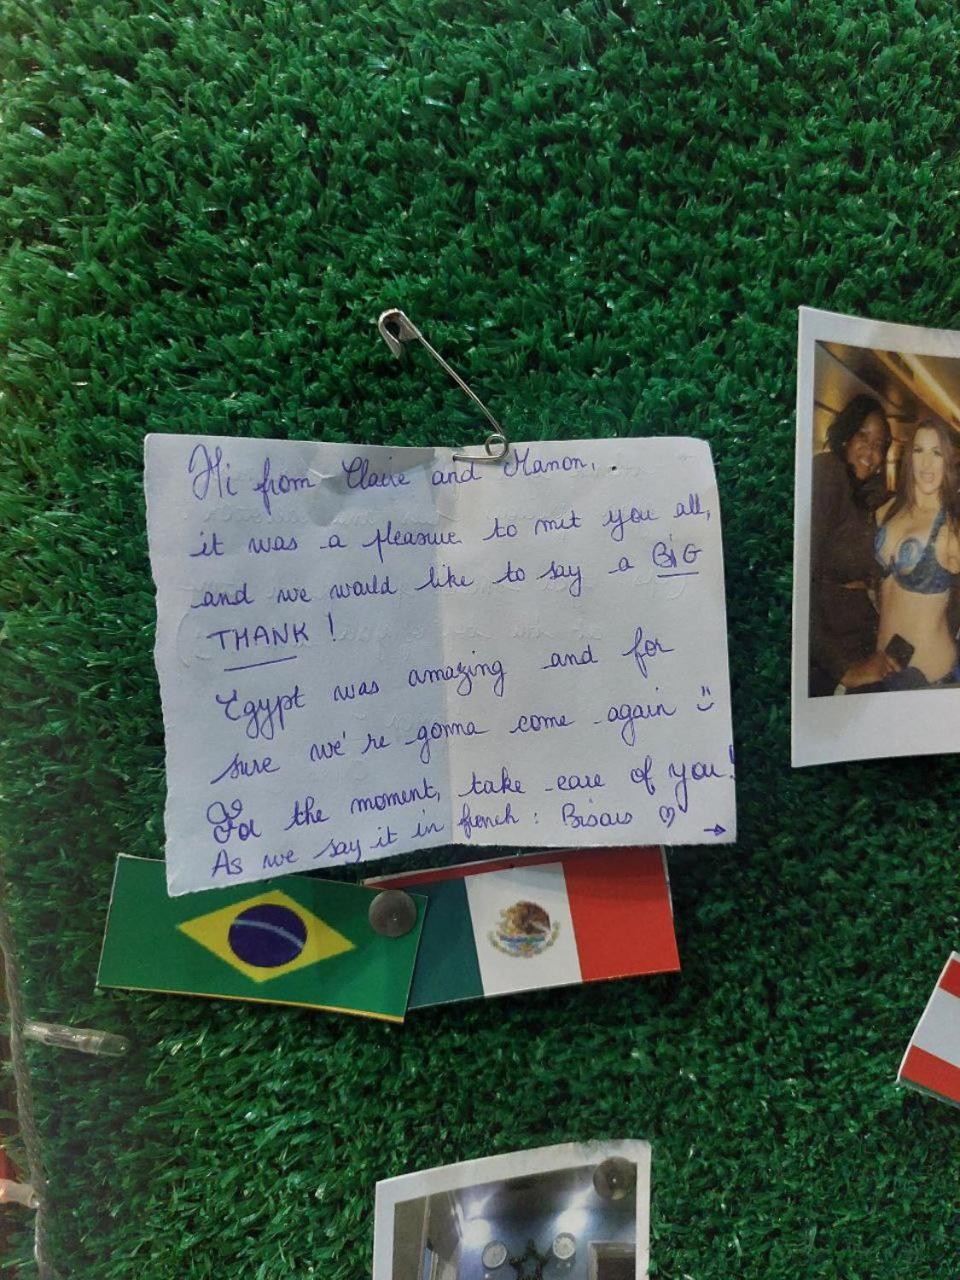 Hi from Claire and Manon,
it was a pleasure to mit you all,
and we would like to say a BiG
THANK !
Egypt was amazing and for
sure we're gonna come again :)
For the moment, take care of you!
As we say it in french : Bisous ♡ →